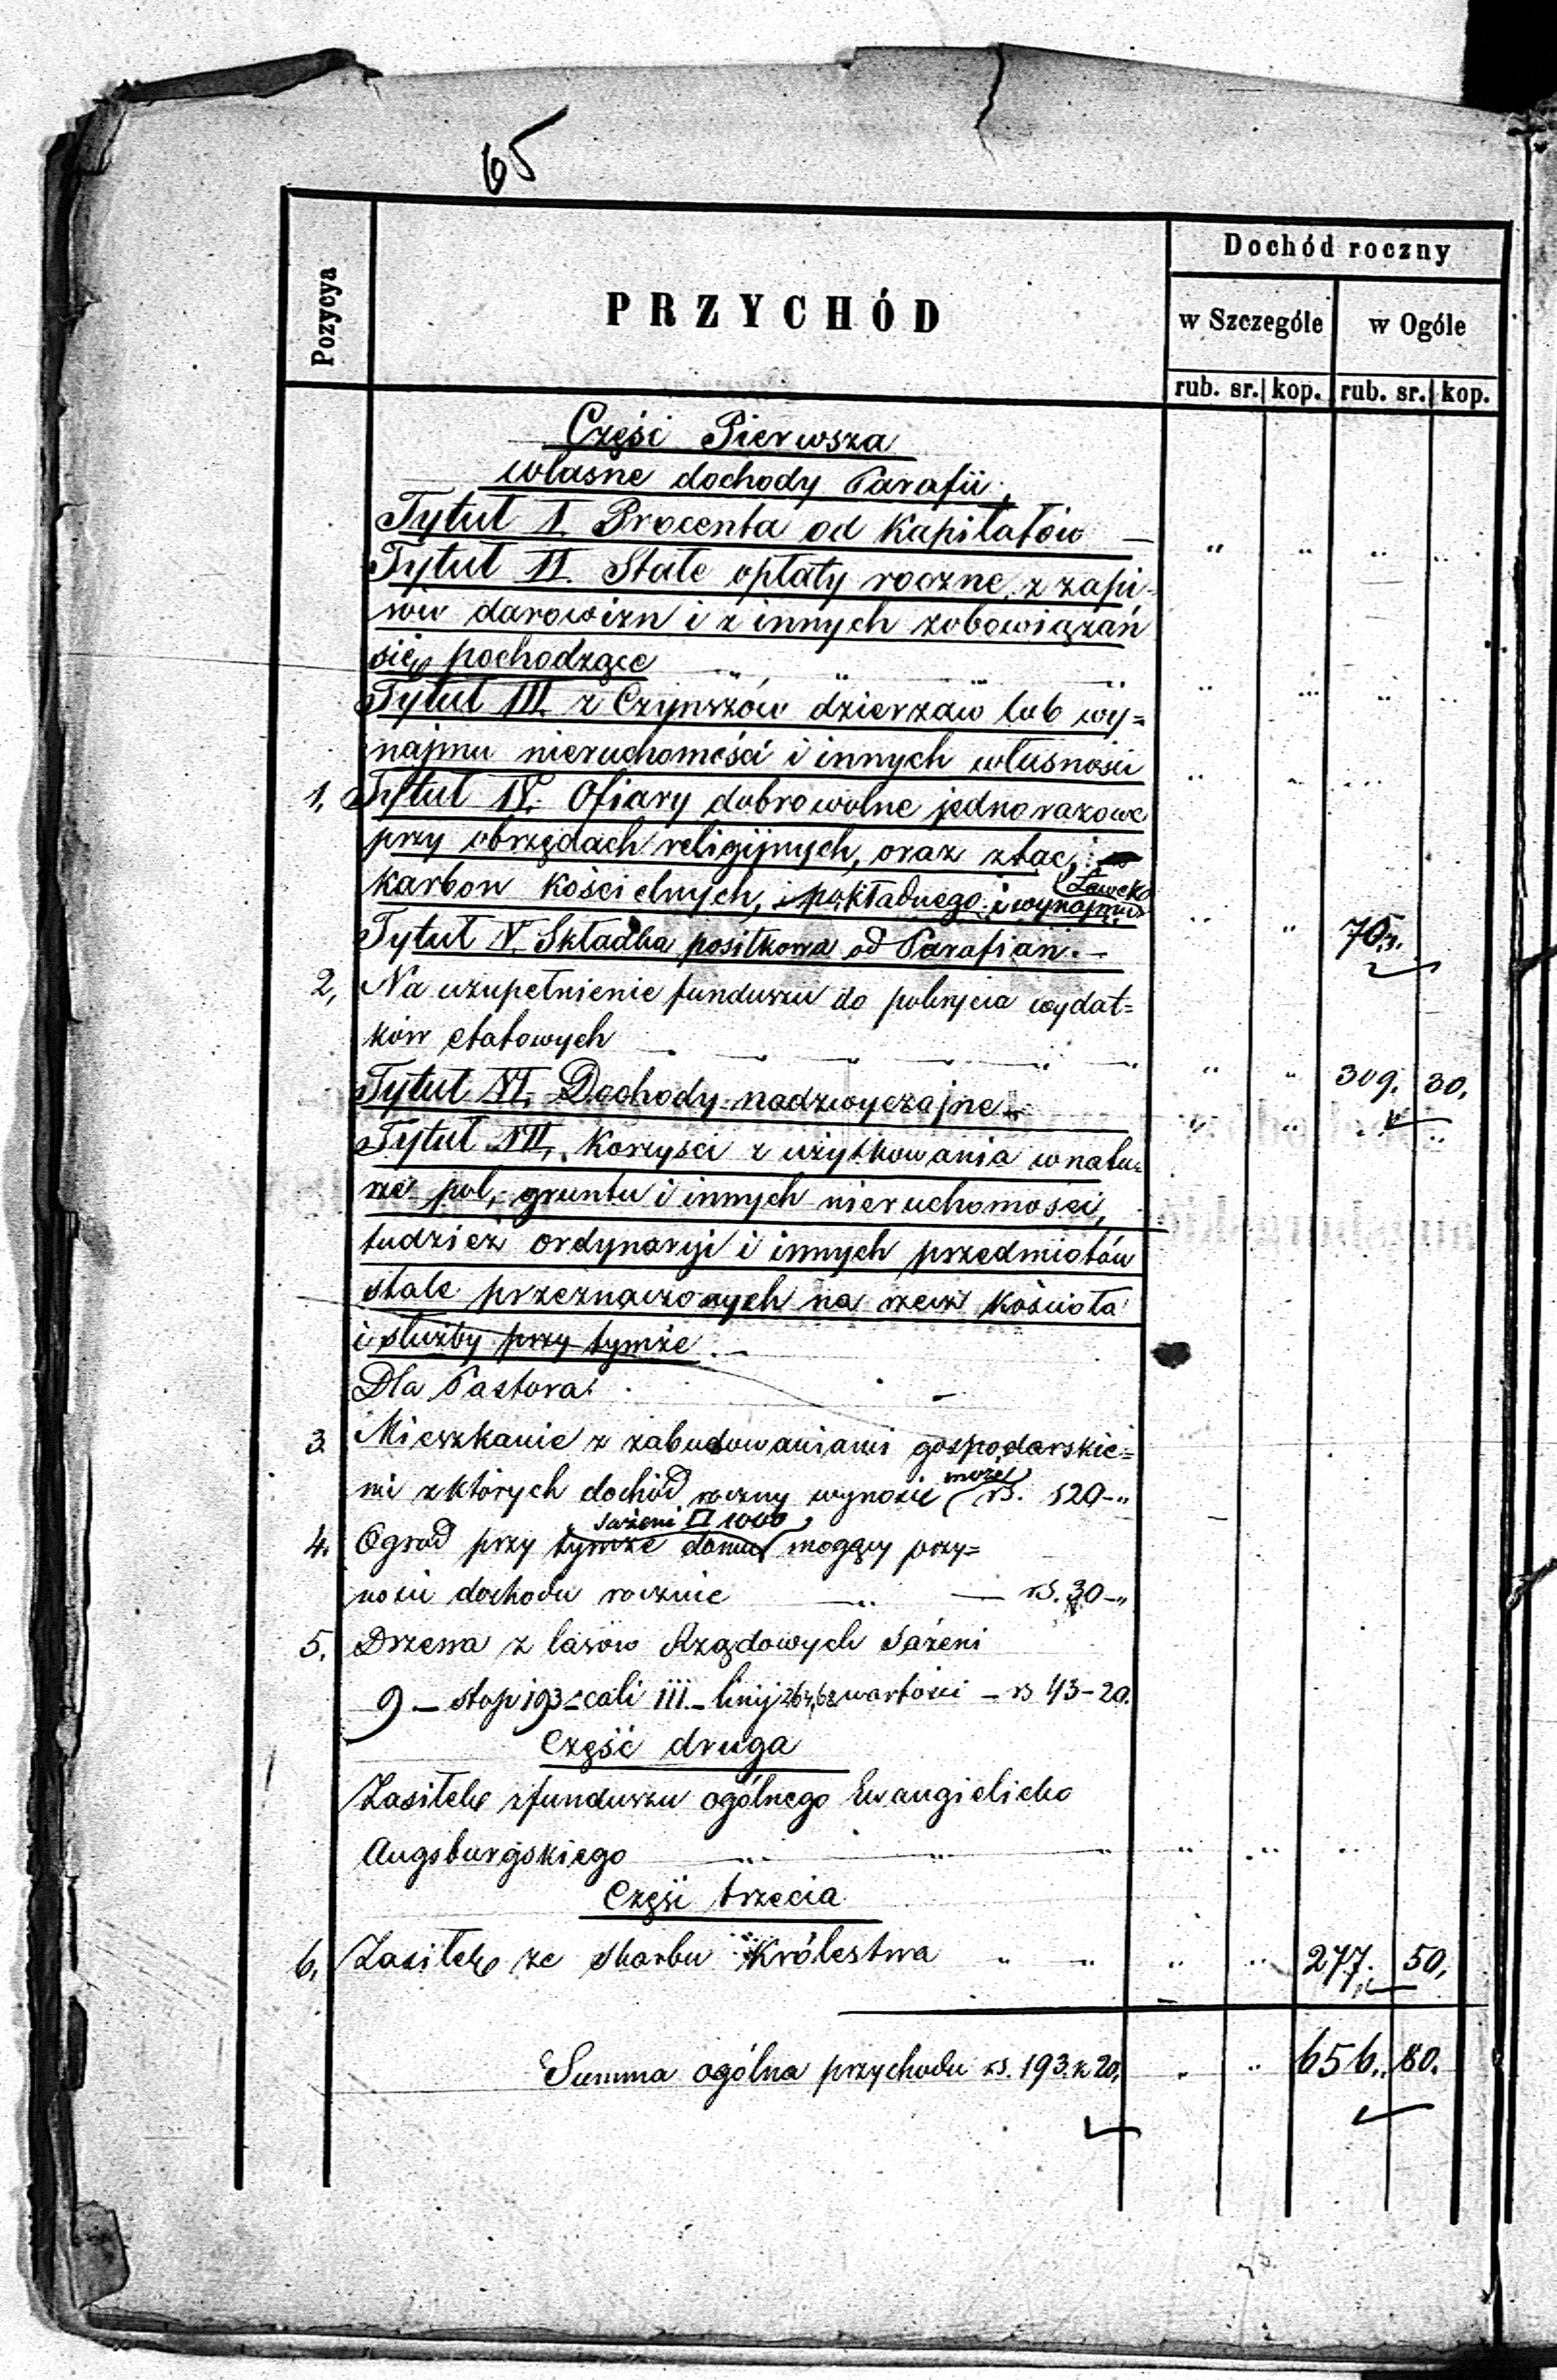 65
Pozycya
PRZYCHÓD
Dochód roczny
w Szczególe
w Ogóle
rub. sr. kop. rub. sr. kop.
Części Pierwsza
własne dochody Parafii,
Tytuł I. Procenta od kapitałów —
Tytuł II. Stałe opłaty roczne, z zapi-
sów darowizn i z innych zobowiązań
się pochodzące
Tytuł III. z Czynszów dzierzaw lub wy=
najmu nieruchomości i innych własności
1, Tytuł IV. Ofiary dobrowolne jednorazowe
przy obrzędach religijnych, oraz z tac, i
karbon kościelnych, i pokładnego i wynajmu Ławek 70.
Tytuł V. Składka posiłkowa od Parafian. —
2, Na uzupełnienie funduszu do pokrycia wydat=
ków etatowych 309. 30.
Tytuł VI. Dochody nadzwyczajne
Tytuł VII, Korzyści z użytkowania w natu=
rze pol, gruntu i innych nieruchomości,
tudzież ordynaryi i innych przedmiotów
stale przeznaczonych na rzecz Kościoła
i służby przy tymże. —
Dla Pastora.
3. Mieszkanie z zabudowaniami gospodarskie=
mi z których dochód roczny wynosić może rs. 120 - „
4. Ogród przy tymże domu sażeni □ 1000 mogący przy=
nosić dochodu rocznie — rs. 30 - „
5. Drzewa z lasów Rządowych Sażeni
9 — stop 193 - cali III. - linij 264,68 wartości - rs 43 - 20.
Część druga
Zasiłek z funduszu ogólnego Ewangielicko
Augsburgskiego
Częśi trzecia
6, Zasiłek ze Skarbu Królestwa 277. 50,
Summa ogólna przychodu rs. 193. k 20, 656. 80.